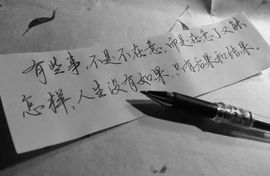 有些事,不是不在意,而是在意了又能
怎样,人生没有如果,只有后果和结果。